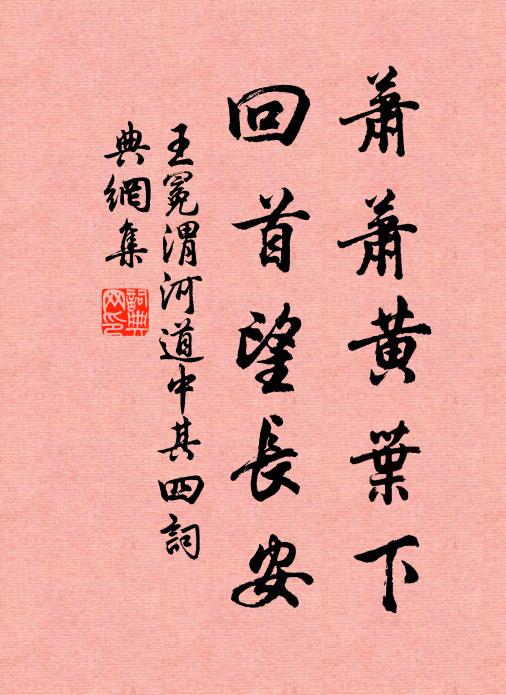 蕭蕭黃葉下
回首望長安
王冕渭河道中其四詞
典網集
詞典網印